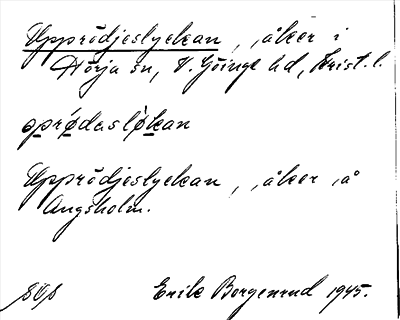 Upprödjeslyckan, åker i
Hörja sn, V. Göinge hd, Krist. l.
oprødesløkan
Upprödjeslyckan, åker å
Ängsholm.
Erik Borgenrud 1945.